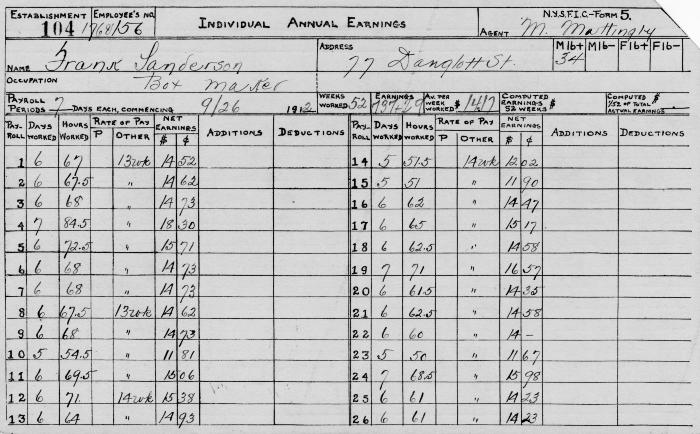 ESTABLISHMENT EMPLOYEE'S NO. INDIVIDUAL ANNUAL EARNINGS N.Y.S.F.I.C.-FORM 5.
104 1768/156 AGENT M. Mattingly
NAME Frank Sanderson ADDRESS 77 St. M16+ M16- F16+ F16-
34
OCCUPATION Box Maker
PAYROLL PERIODS 7 DAYS EACH, COMMENCING 9/26 1912 WEEKS WORKED 52 EARNINGS $ 737.29 AV. PER WEEK WORKED $ 14.17 COMPUTED EARNINGS 52 WEEKS $ COMPUTED $ % OF TOTAL ACTUAL EARNINGS
PAY-ROLL DAYS WORKED HOURS WORKED RATE OF PAY P OTHER NET EARNINGS $ ¢ ADDITIONS DEDUCTIONS PAY-ROLL DAYS WORKED HOURS WORKED RATE OF PAY P OTHER NET EARNINGS $ ¢ ADDITIONS DEDUCTIONS
1 6 67 13wk 14 52 14 5 51.5 14wk 12 02
2 6 67.5 " 14 62 15 5 51 " 11 90
3 6 68 " 14 73 16 6 62 " 14 47
4 7 84.5 " 18 30 17 6 65 " 15 17
5 6 72.5 " 15 71 18 6 62.5 " 14 58
6 6 68 " 14 73 19 7 71 " 16 57
7 6 68 " 14 73 20 6 61.5 " 14 35
8 6 67.5 13wk 14 62 21 6 62.5 " 14 58
9 6 68 " 14 73 22 6 60 " 14 -
10 5 54.5 " 11 81 23 5 50 " 11 67
11 6 69.5 " 15 06 24 7 68.5 " 15 98
12 6 71 14wk 15 38 25 6 61 " 14 23
13 6 64 " 14 93 26 6 61 " 14 23